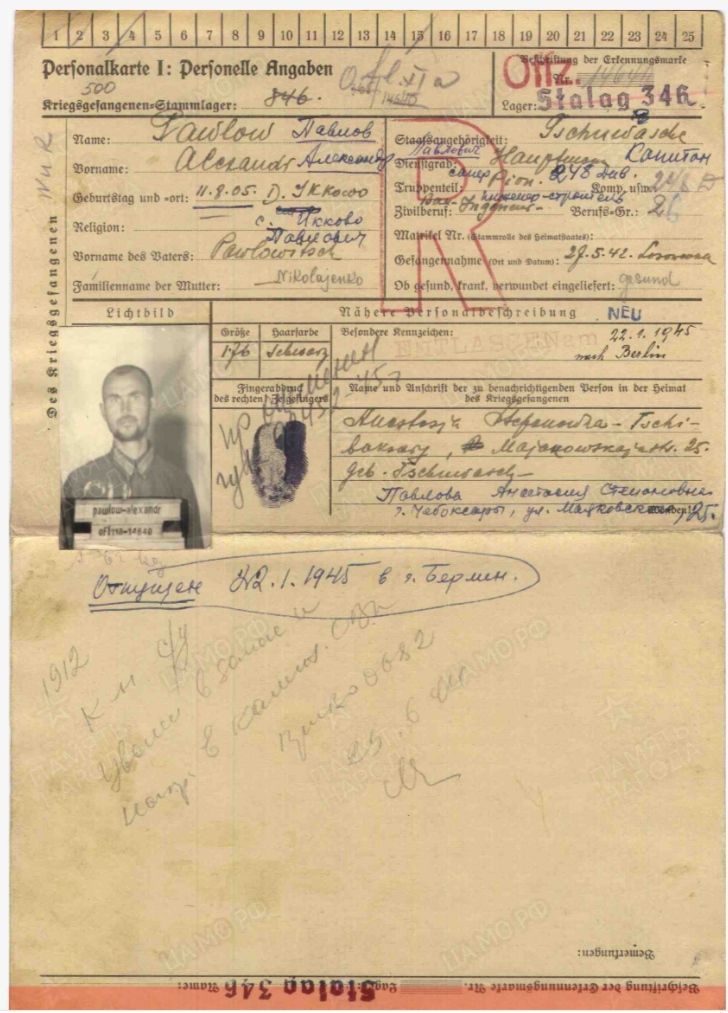 1 2 3 4 5 6 7 8 9 10 11 12 13 14 15 16 17 18 19 20 21 22 23 24 25
Personalkarte I: Personelle Angaben
Beschriftung der Erkennungsmarke
500
Offz.
Nr.
Kriegsgefangenen-Stammlager:
Lager: Stalag 346
Des Kriegsgefangenen
Name: Pawlow Павлов
Staatsangehörigkeit: Tschuwasche
Vorname: Alexandr Александр
Павлович
Dienstgrad: Hauptmann Капитан
Geburtstag und -ort: 11.8.05. D. Ikkowo
сапер
Truppenteil: Pion. 248 див. Komp. usw.: 248 D
с. Икково
инженер-строитель
Zivilberuf: Bau-Ingenieur Berufs-Gr.: 26
Religion:
Matrikel Nr. (Stammrolle des Heimatstaates):
Павлович
Vorname des Vaters: Pawlowitsch
Gefangennahme (Ort und Datum): 27.5.42.
Familienname der Mutter: Nikolajenko
Ob gesund, krank, verwundet eingeliefert: gesund
R
Lichtbild
Nähere Personalbeschreibung
NEU
Größe
Haarfarbe
Besondere Kennzeichen:
22.1.1945
176
Schwarz
ENTLASSEN
nach Berlin
Fingerabdruck
des rechten Zeigefingers
Name und Anschrift der zu benachrichtigenden Person in der Heimat
des Kriegsgefangenen
Anastasja Stepanowna - Tschi-
boksary, Majakowskaja str. 25.
geb. Tschuwasch
Павлова Анастасия Степановна
г. Чебоксары, ул. Маяковская, 25.
pawlow-alexandr
Отпущен 22.1.1945 в г. Берлин.
1912
с/у
К н
в запас и
25.6
Bemerkungen:
Beschriftung der Erkennungsmarke Nr. Lager: Stalag 346 Name:
ПАМЯТЬ
НАРОДА
ЦАМО РФ